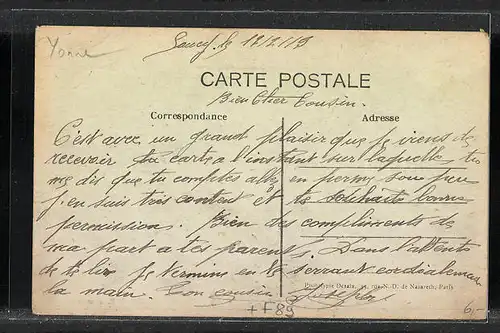 Yonne
Soucy le 12/2/19
CARTE POSTALE
Bien Cher Cousin.
Correspondance
Adresse
C'est avec un grand plaisir que je viens de
recevoir ta carte à l'instant sur laquelle tu
me dis que tu comptes aller en perme sous peu
j'en suis très content et te souhaite bonne
permission. Bien des compliments de
ma part a tes parents. Dans l'attente
de te lire je termine en te serrant cordialement
la main. Ton cousin
Phototypie Desaix, rue N.-D. de Nazareth, Paris
++89
6,-